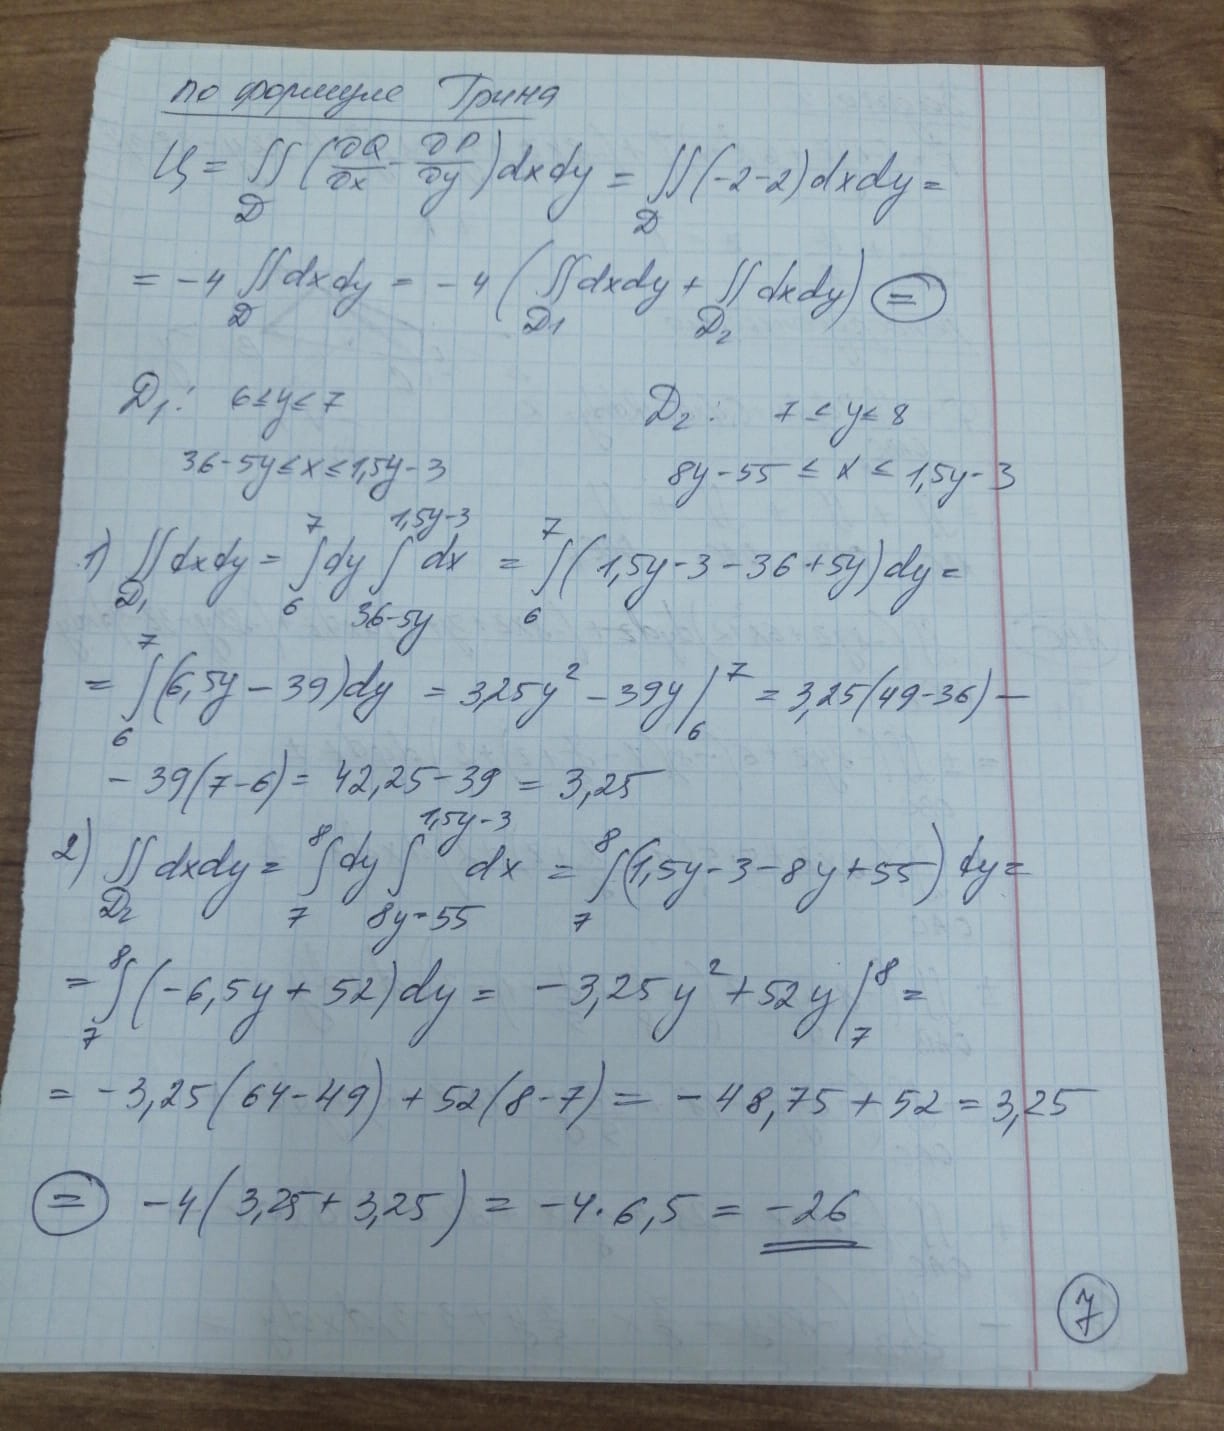 по формуле Грина
Ц = ∬_D (∂Q/∂x - ∂P/∂y) dxdy = ∬_D (-2-2) dxdy =
= -4 ∬_D dxdy = -4 (∬_D₁ dxdy + ∬_D₂ dxdy) ⊜
D₁: 6≤y≤7 D₂: 7≤y≤8
36-5y≤x≤1,5y-3 8y-55 ≤ x ≤ 1,5y-3
1) ∬_D₁ dxdy = ∫_6^7 dy ∫_{36-5y}^{1,5y-3} dx = ∫_6^7 (1,5y-3-36+5y) dy =
= ∫_6^7 (6,5y - 39) dy = 3,25y² - 39y |_6^7 = 3,25(49-36) -
- 39(7-6) = 42,25-39 = 3,25
2) ∬_D₂ dxdy = ∫_7^8 dy ∫_{8y-55}^{1,5y-3} dx = ∫_7^8 (1,5y-3-8y+55) dy =
= ∫_7^8 (-6,5y + 52) dy = -3,25y² + 52y |_7^8 =
= -3,25(64-49) + 52(8-7) = -48,75 + 52 = 3,25
⊜ -4(3,25+3,25) = -4·6,5 = -26
7